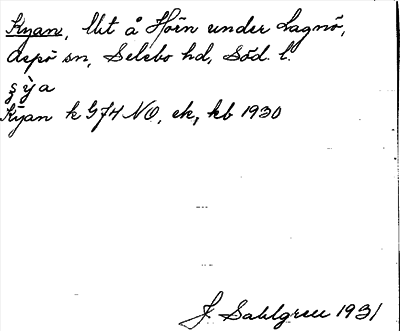 Kyan, lht å Hörn under Lagnö,
Aspö sn, Selebo hd, Söd. l.
ʂy̆̀a
Kyan k G74 NO, ek, kb 1930
J. Sahlgren 1931